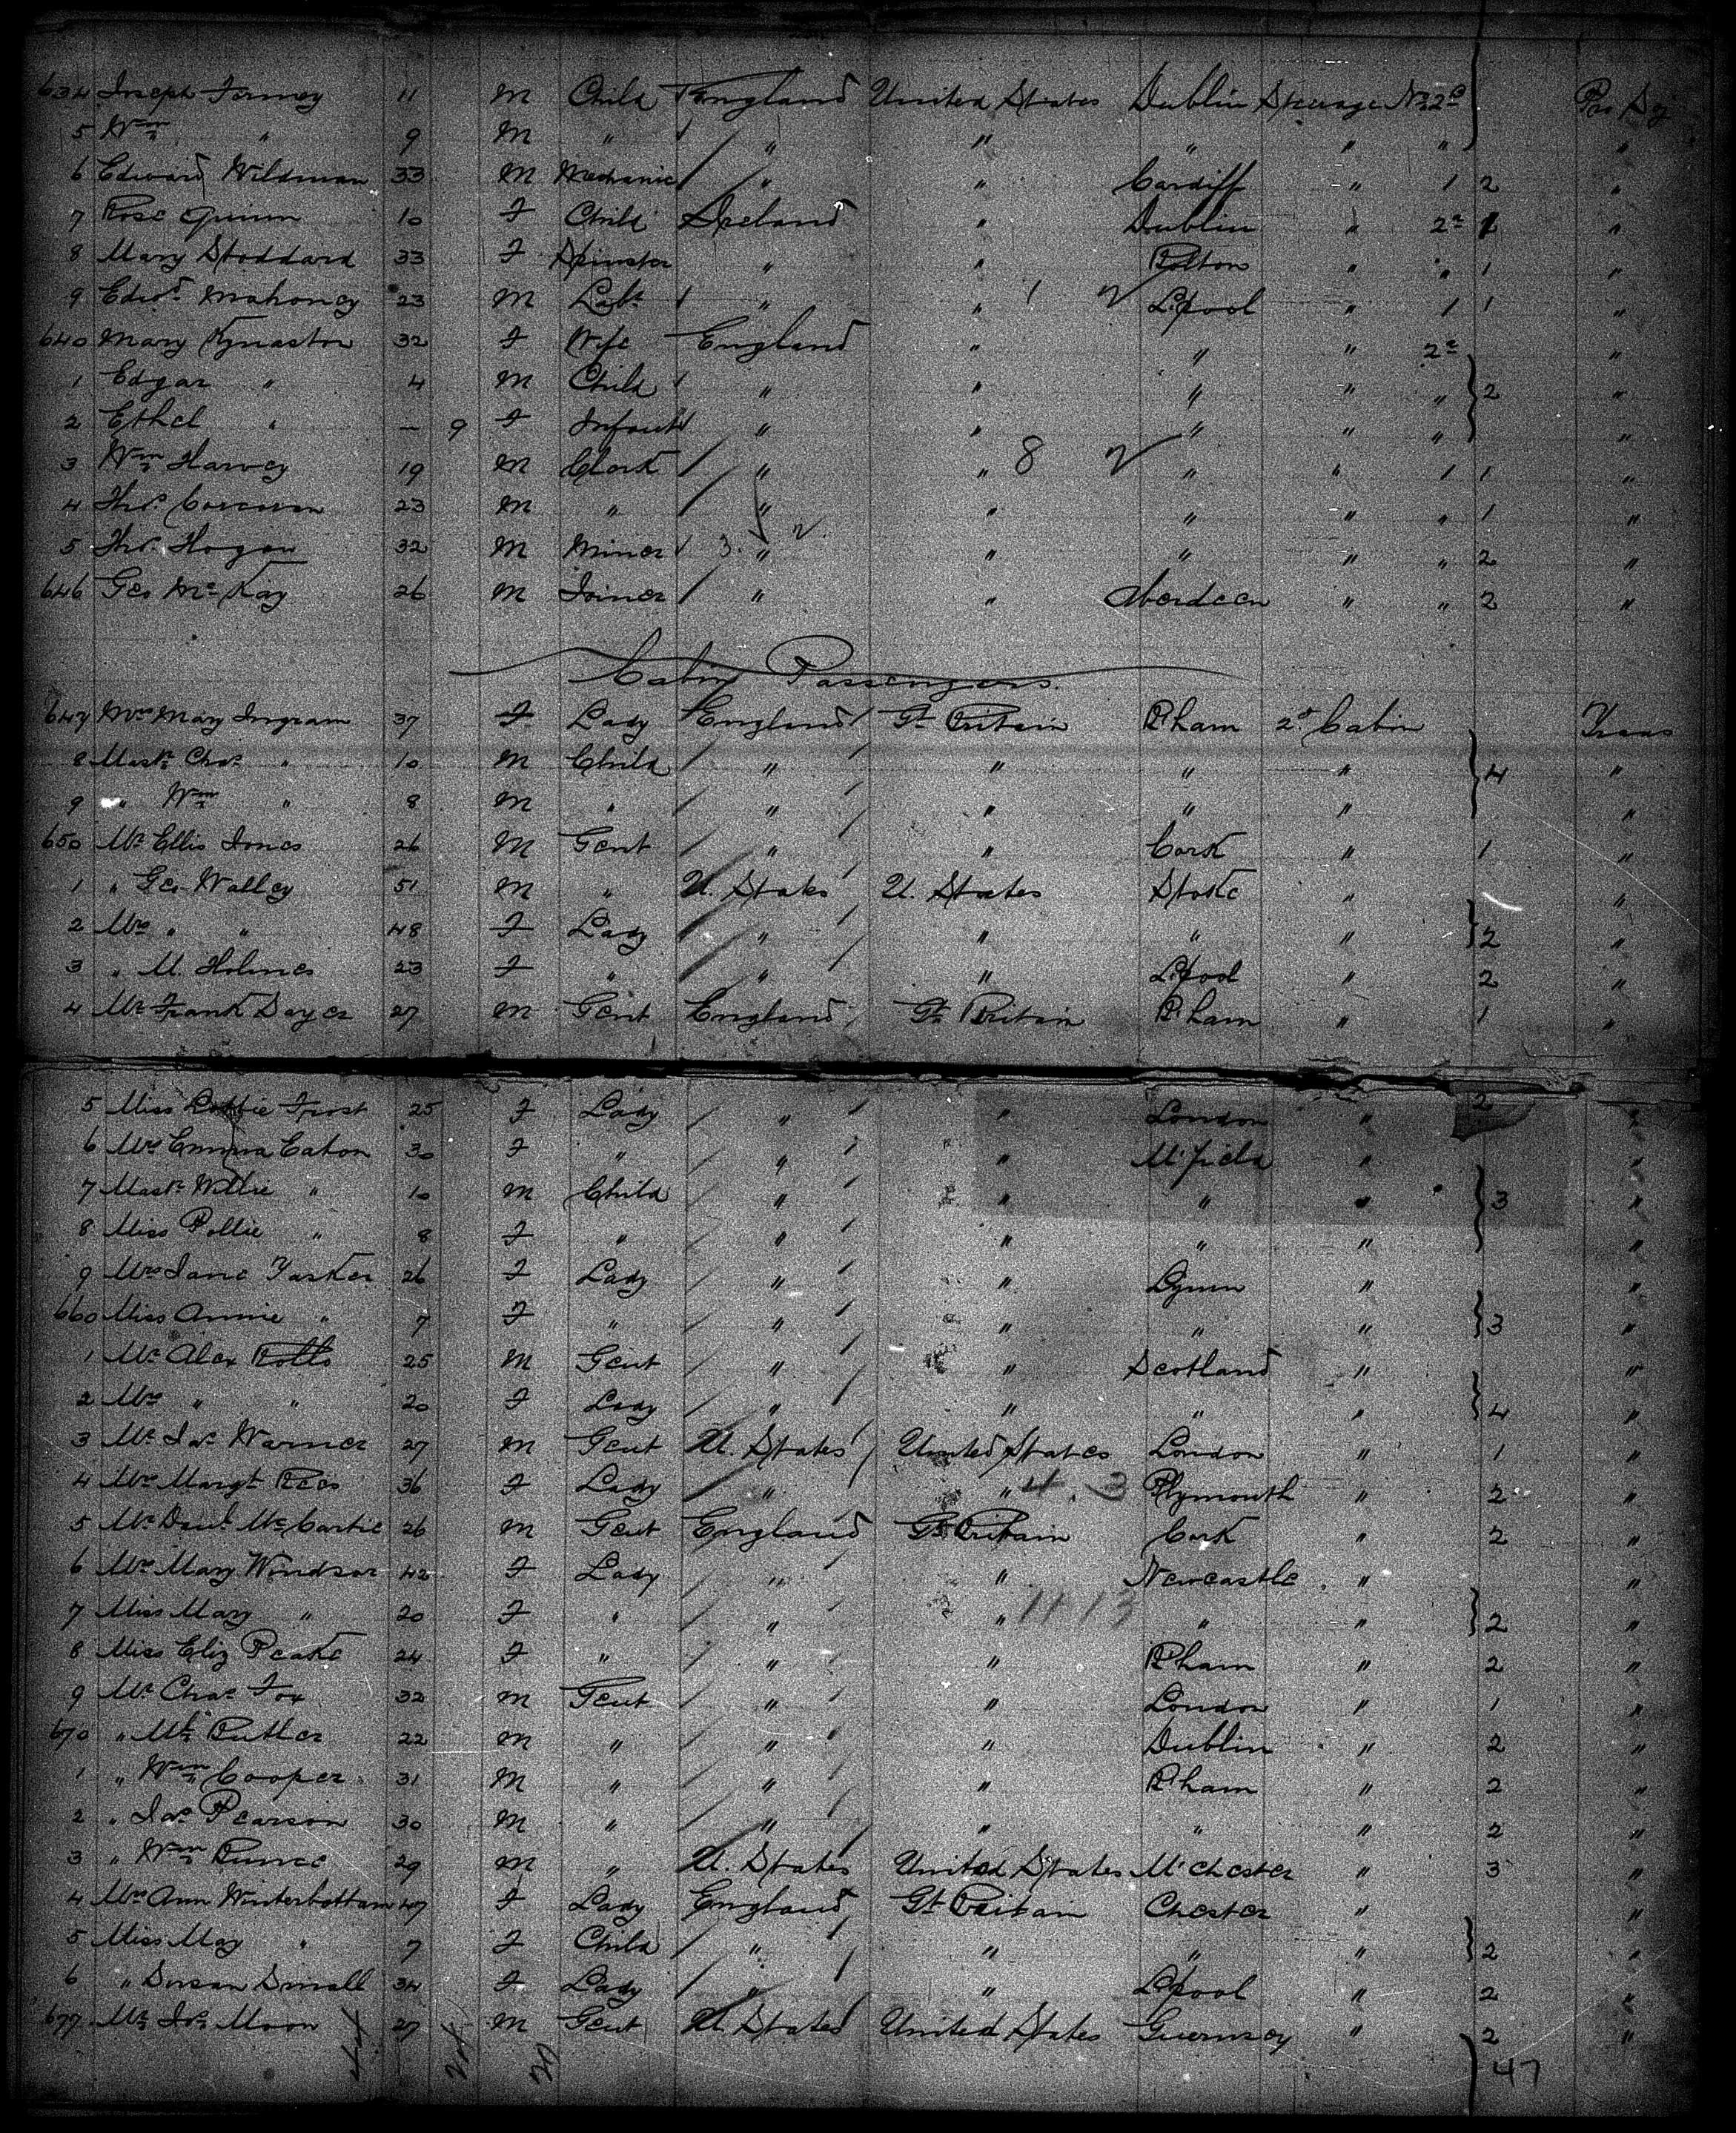 634 Joseph Formey 11 M Child England United States Dublin Steerage No 2
5 Wm " 9 M " " " " " "
6 Edward Wildman 33 M Mechanic " " Cardiff " 1 2 "
7 Rose Quinn 10 F Child Ireland " Dublin " 2 "
8 Mary Stoddard 33 F Spinster " " Bolton " " 1 "
9 Edwd Mahoney 23 M Labr " " L'pool " 1 1 "
640 Mary Kynaston 32 F Wife England " " " 2 "
1 Edgar " 4 M Child " " " " " 2 "
2 Ethel " — 9 F Infant " " " " " "
3 Wm Harvey 19 M Clerk " " 8 " " 1 1 "
4 Thos Corcoran 23 M " " " " " " 1 "
5 Thos Hogan 32 M Miner 3. " " " " " 2 "
646 Geo McKay 26 M Joiner " " Aberdeen " " 2 "
Cabin Passengers.
647 Mrs May Ingram 37 F Lady England Gt Britain B'ham 2d Cabin Trans
8 Mastr Chas " 10 M Child " " " " 4 "
9 " Wm " 8 M " " " " " "
650 Mr Ellis Jones 26 M Gent " " Cork " 1 "
1 " Geo Walley 51 M " U. States U. States Stoke " "
2 Mrs " " 48 F Lady " " " " 2 "
3 " M. Holmes 23 F " " " L'pool " 2 "
4 Mr Frank Sayer 27 M Gent England Gt Britain B'ham " 1 "
5 Miss Lottie Frost 25 F Lady " " London " 2 "
6 Mrs Emma Eaton 30 F " " " M'field " "
7 Mastr Willie " 10 M Child " " " " 3 "
8 Miss Pollie " 8 F " " " " " "
9 Mrs Jane Tasker 26 F Lady " " Lynn " "
660 Miss Annie " 7 F " " " " " 3 "
1 Mr Alex Potts 25 M Gent " " Scotland " "
2 Mrs " " 20 F Lady " " " " 4 "
3 Mr Jas Warner 27 M Gent U. States United States London " 1 "
4 Mrs Margt Rees 36 F Lady " " 4. 3 Plymouth " 2 "
5 Mr Danl McCartie 26 M Gent England Gt Britain Cork " 2 "
6 Mrs Mary Windsor 42 F Lady " " Newcastle " "
7 Miss Mary " 20 F " " " 11 13 " " 2 "
8 Miss Eliz Peake 24 F " " " B'ham " 2 "
9 Mr Chas Fox 32 M Gent " " London " 1 "
670 " Ml Butler 22 M " " " Dublin " 2 "
1 " Wm Cooper 31 M " " " B'ham " 2 "
2 " Jas Pearson 30 M " " " " " 2 "
3 " Wm Bunce 29 M " U. States United States M'chester " 3 "
4 Mrs Ann Winterbottam 47 F Lady England Gt Britain Chester " "
5 Miss May " 7 F Child " " " " 2 "
6 " Susan Small 34 F Lady " " L'pool " 2 "
677 Mr Jno Moon 27 M Gent U. States United States Guernsey " 2 "
47